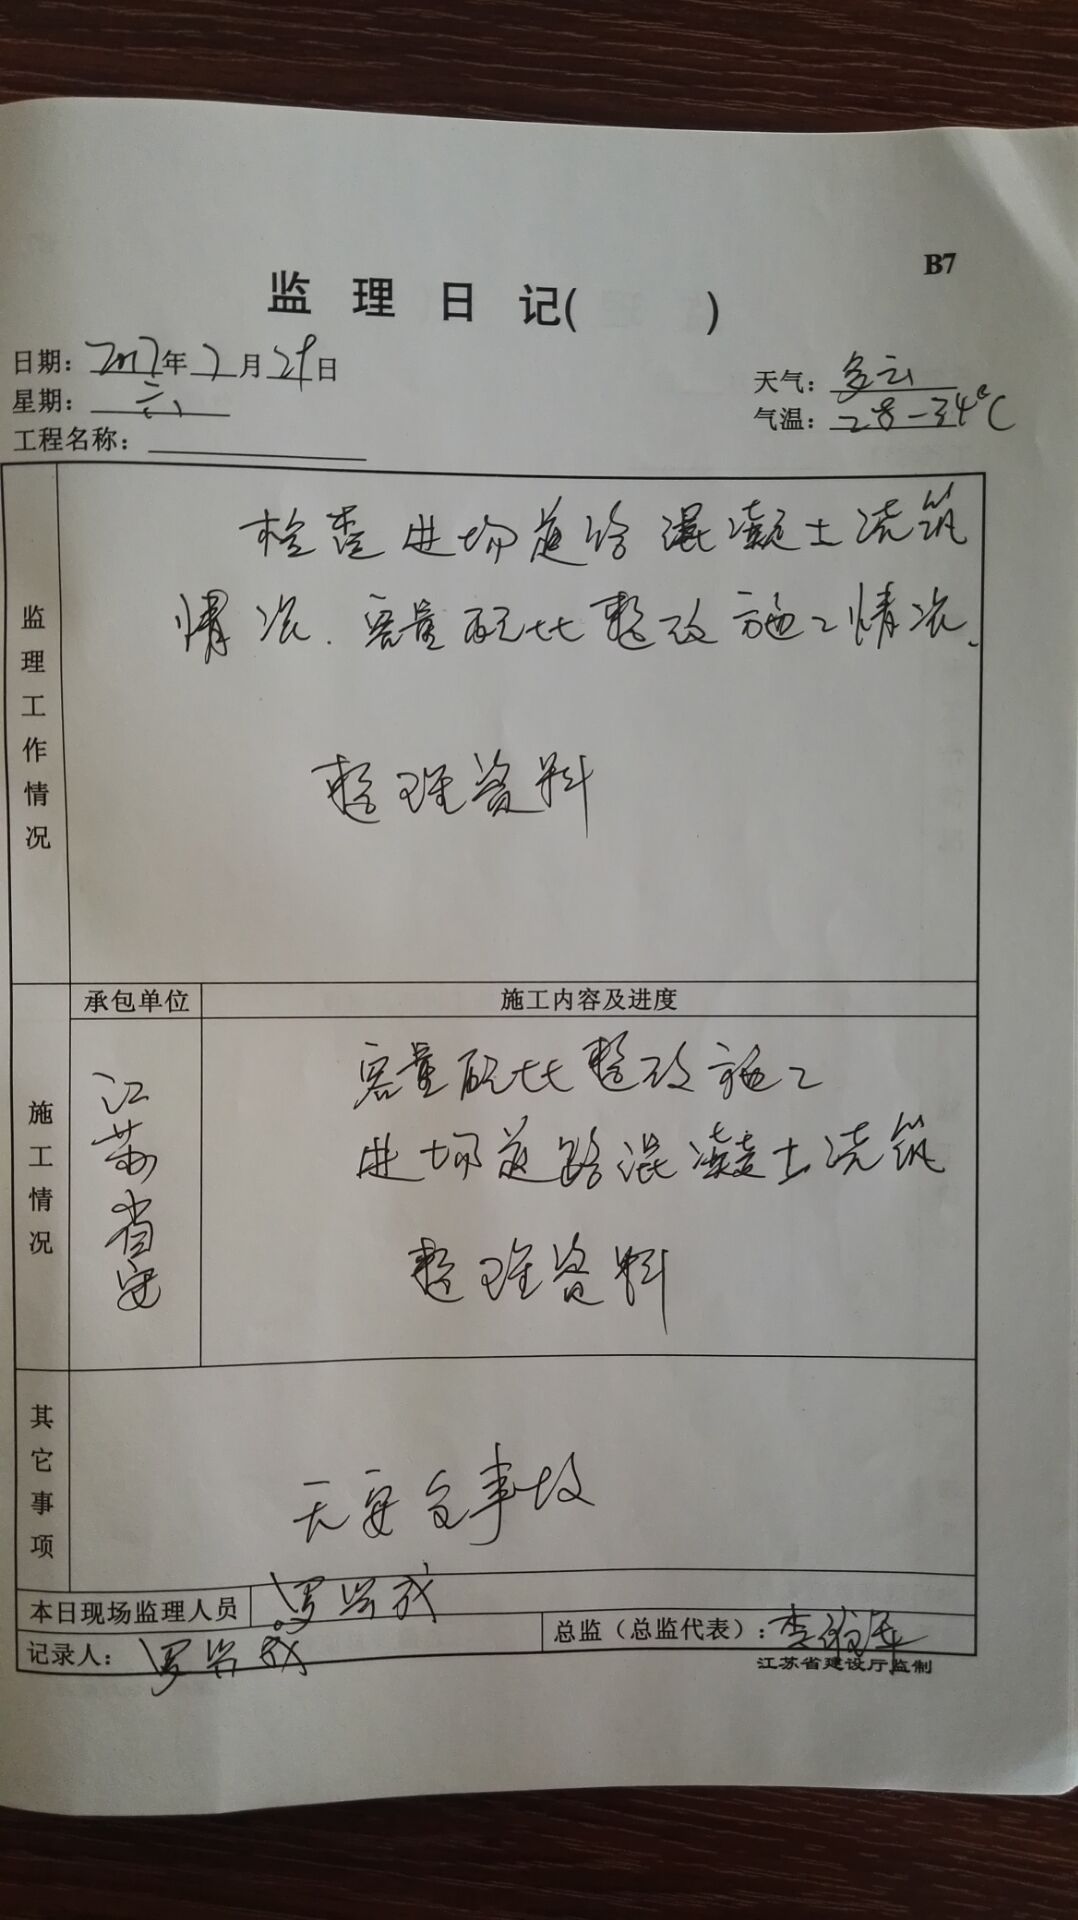 B7
监理日记(　　)
日期：2017年7月29日
天气：多云
星期：六
气温：28-34℃
工程名称：
监理工作情况
检查进场道路混凝土浇筑
情况、容量配比整改施工情况、
整理资料
承包单位
施工内容及进度
施工情况
江苏省安
容量配比整改施工
进场道路混凝土浇筑
整理资料
其它事项
无安全事故
本日现场监理人员
罗兴成
记录人：罗兴成
总监（总监代表）：李
江苏省建设厅监制